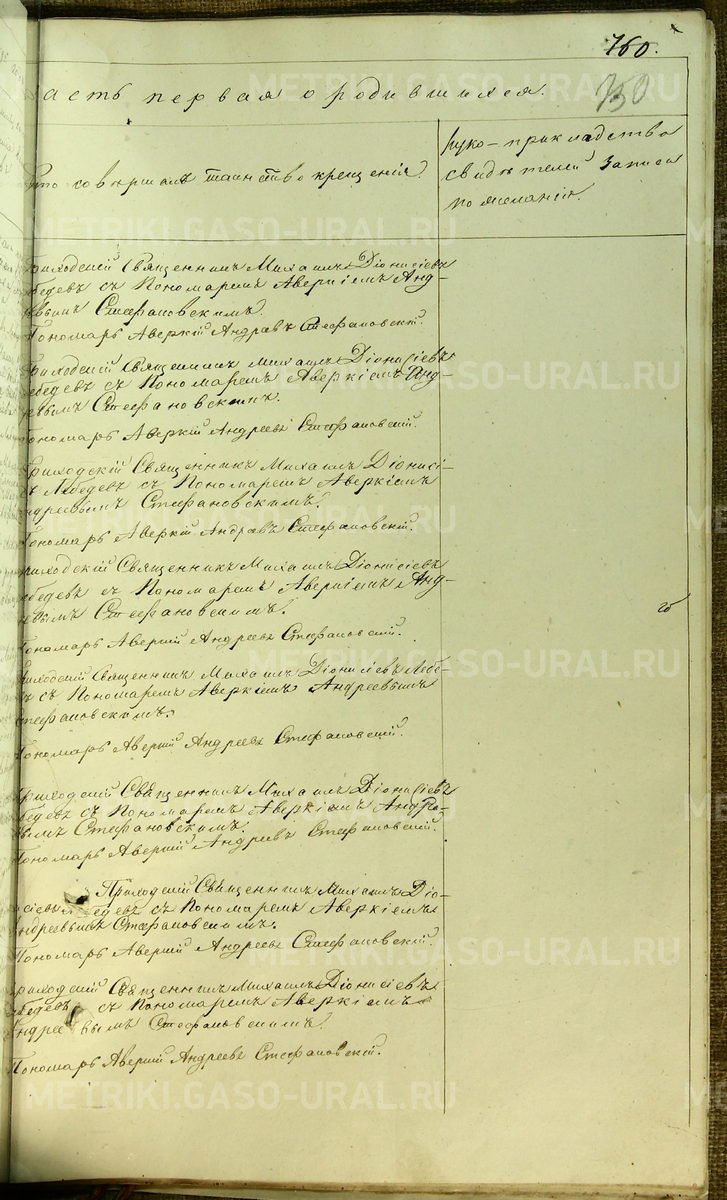 760.
750
асть первая о родившихся.
то совершалъ таинство крещенія.
Руко-прикладство
свидѣтелей записи
по желанію.
риходскій Священникъ Михаилъ Діонисіевъ
бедевъ съ Пономаремъ Аверкіемъ Анд-
евымъ Стефановскимъ.
Пономарь Аверкій Андреевъ Стефановскій.
риходскій Священникъ Михаилъ Діонисіевъ
ебедевъ съ Пономаремъ Аверкіемъ Анд-
еевымъ Стефановскимъ.
Пономарь Аверкій Андреевъ Стефановскій.
Приходскій Священникъ Михаилъ Діонисі-
ъ Лебедевъ съ Пономаремъ Аверкіемъ
ндреевымъ Стефановскимъ.
Пономарь Аверкій Андреевъ Стефановскій.
риходскій Священникъ Михаилъ Діонисіевъ
ебедевъ съ Пономаремъ Аверкіемъ Анд-
евымъ Стефановскимъ.
Пономарь Аверкій Андреевъ Стефановскій.
риходскій Священникъ Михаилъ Діонисіевъ Лебе-
ъ съ Пономаремъ Аверкіемъ Андреевымъ
тефановскимъ.
Пономарь Аверкій Андреевъ Стефановскій.
риходскій Священникъ Михаилъ Діонисіевъ
бедевъ съ Пономаремъ Аверкіемъ Андре-
вымъ Стефановскимъ.
Пономарь Аверкій Андреевъ Стефановскій.
Приходскій Священникъ Михаилъ Діо-
исіевъ Лебедевъ съ Пономаремъ Аверкіемъ
ндреевымъ Стефановскимъ.
Пономарь Аверкій Андреевъ Стефановскій.
риходскій Священникъ Михаилъ Діонисіевъ
ебедевъ съ Пономаремъ Аверкіемъ
Андреевымъ Стефановскимъ.
Пономарь Аверкій Андреевъ Стефановскій.
METRIKI.GASO-URAL.RU